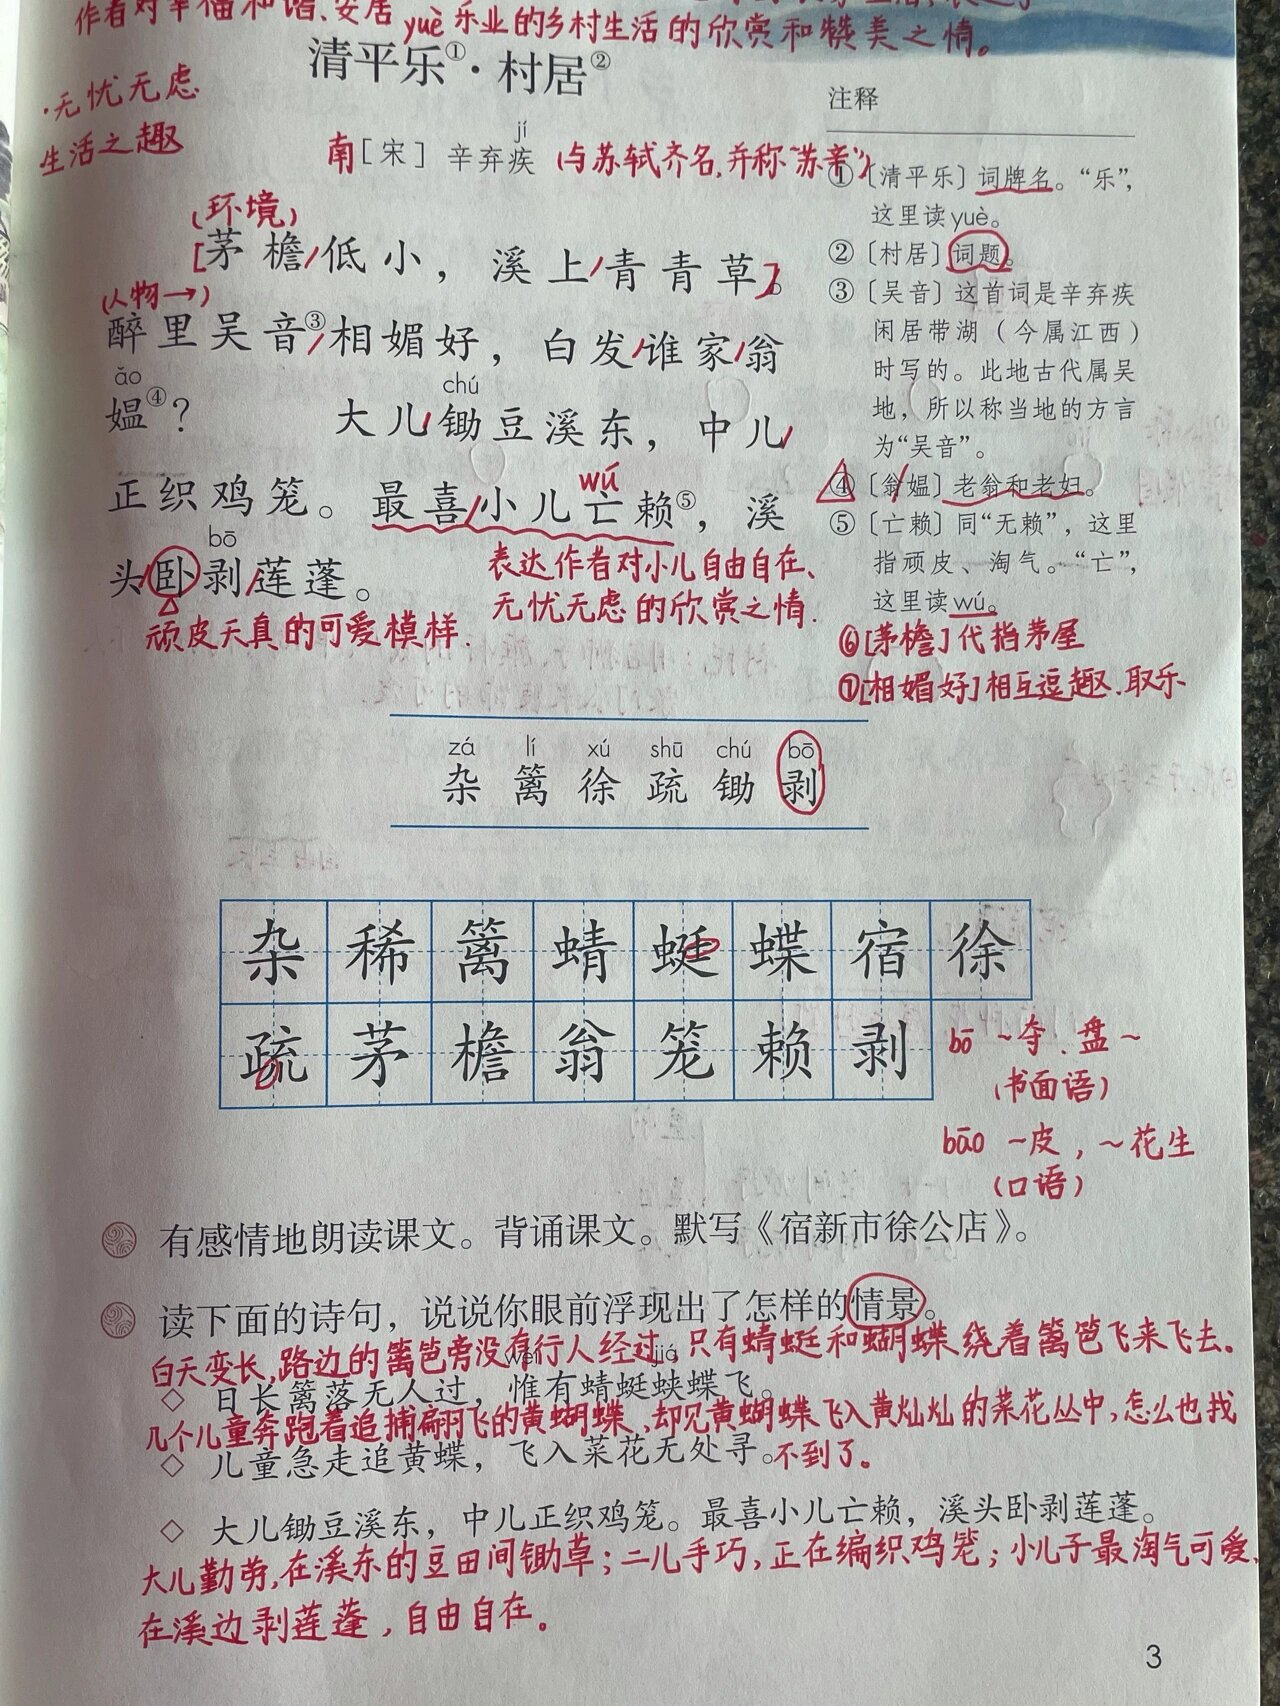 作者对幸福和谐、安居yuè乐业的乡村生活的欣赏和赞美之情。
清平乐①·村居②
·无忧无虑
生活之趣
南[宋] 辛弃疾 (与苏轼齐名,并称“苏辛”)
jí
(环境)
[茅檐/低小，溪上/青青草]。
(人物→)
醉里吴音③/相媚好，白发/谁家/翁
ǎo chú
媪④？ 大儿/锄豆溪东，中儿/
wú
正织鸡笼。最喜/小儿亡赖⑤，溪
bō
头/卧剥/莲蓬。
表达作者对小儿自由自在、
无忧无虑的欣赏之情.
顽皮天真的可爱模样.
注释
①〔清平乐〕词牌名。“乐”，
这里读yuè。
②〔村居〕词题。
③〔吴音〕这首词是辛弃疾
闲居带湖（今属江西）
时写的。此地古代属吴
地，所以称当地的方言
为“吴音”。
④〔翁/媪〕老翁和老妇。
⑤〔亡赖〕同“无赖”，这里
指顽皮、淘气。“亡”，
这里读wú。
⑥[茅檐]代指茅屋
⑦[相媚好]相互逗趣.取乐
zá lí xú shū chú bō
杂 篱 徐 疏 锄 剥
杂 稀 篱 蜻 蜓 蝶 宿 徐
疏 茅 檐 翁 笼 赖 剥
bō ~夺.盘~
(书面语)
bāo ~皮,~花生
(口语)
有感情地朗读课文。背诵课文。默写《宿新市徐公店》。
读下面的诗句，说说你眼前浮现出了怎样的情景。
白天变长,路边的篱笆旁没有行人经过,只有蜻蜓和蝴蝶绕着篱笆飞来飞去。
wéi jiá
◇ 日长篱落无人过，惟有蜻蜓蛱蝶飞。
几个儿童奔跑着追捕翩翩飞的黄蝴蝶、却见黄蝴蝶飞入黄灿灿的菜花丛中,怎么也找
◇ 儿童急走追黄蝶，飞入菜花无处寻。不到了。
◇ 大儿锄豆溪东，中儿正织鸡笼。最喜小儿亡赖，溪头卧剥莲蓬。
大儿勤劳,在溪东的豆田间锄草;二儿手巧,正在编织鸡笼;小儿子最淘气可爱,
在溪边剥莲蓬,自由自在。
3